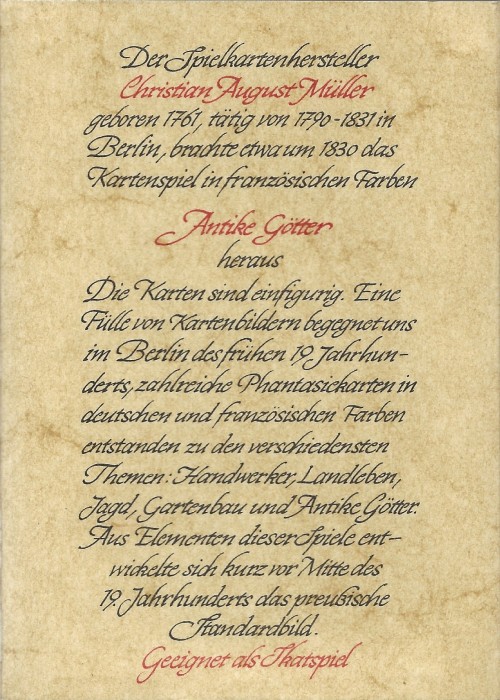 Der Spielkartenhersteller
Christian August Müller
geboren 1761, tätig von 1790-1831 in
Berlin, brachte etwa um 1830 das
Kartenspiel in französischen Farben
Antike Götter
heraus
Die Karten sind einfigurig. Eine
Fülle von Kartenbildern begegnet uns
im Berlin des frühen 19. Jahrhun-
derts, zahlreiche Phantasiekarten in
deutschen und französischen Farben
entstanden zu den verschiedensten
Themen: Handwerker, Landleben,
Jagd, Gartenbau und Antike Götter.
Aus Elementen dieser Spiele ent-
wickelte sich kurz vor Mitte des
19. Jahrhunderts das preußische
Standardbild.
Geeignet als Skatspiel